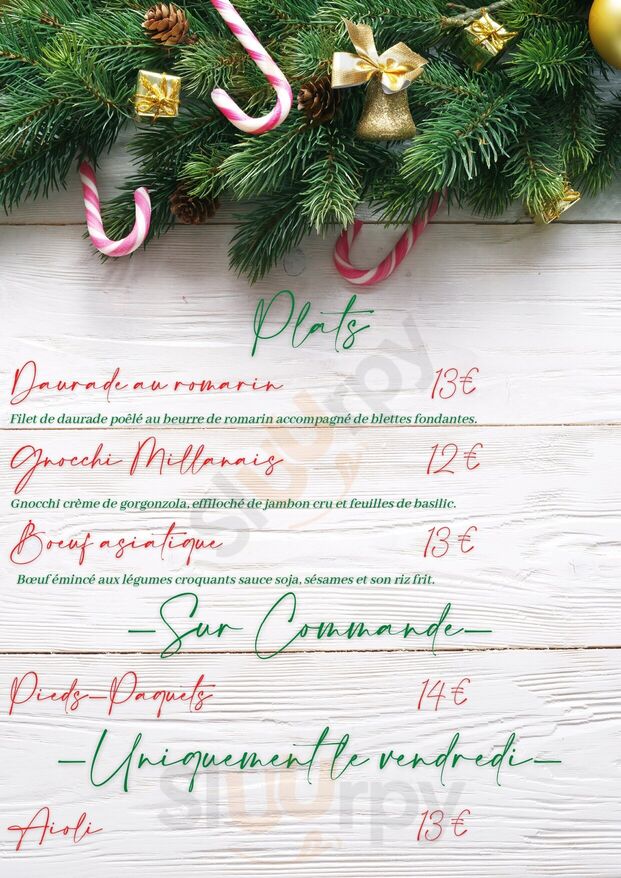 Plats
Daurade au romarin 13€
Filet de daurade poêlé au beurre de romarin accompagné de blettes fondantes.
Gnocchi Millanais 12€
Gnocchi crème de gorgonzola, effiloché de jambon cru et feuilles de basilic.
Boeuf asiatique 13€
Bœuf émincé aux légumes croquants sauce soja, sésames et son riz frit.
—Sur Commande—
Pieds-Paquets 14€
—Uniquement le vendredi—
Aioli 13€
sluurpy
sluurpy